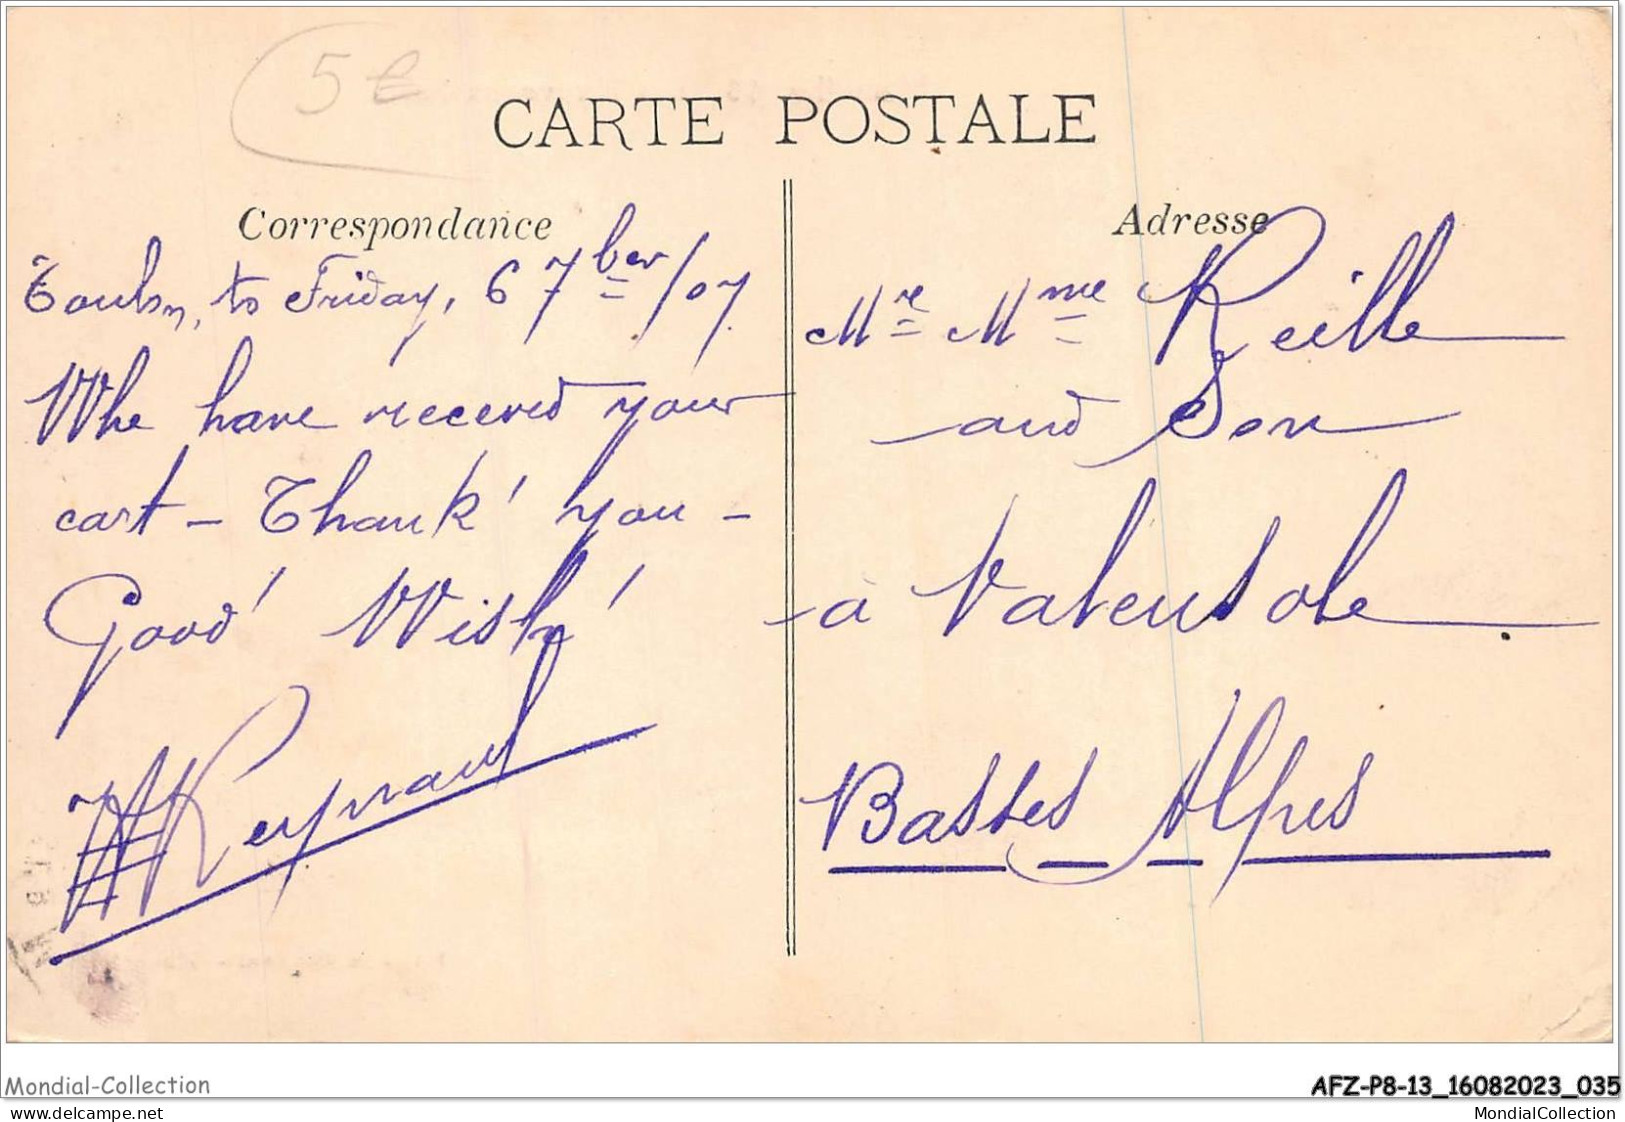 5€
CARTE POSTALE
Correspondance
Toulon, to Friday, 6 7ber/07
Whe have recevied your
cart - Thank' you -
Good' Wish'
Reynaud
Adresse
Mr Mme Reille
and Son
à Valensole
Basses Alpes
Mondial-Collection
delcampe.net
AFZ-P8-13_16082023_035
MondialCollection